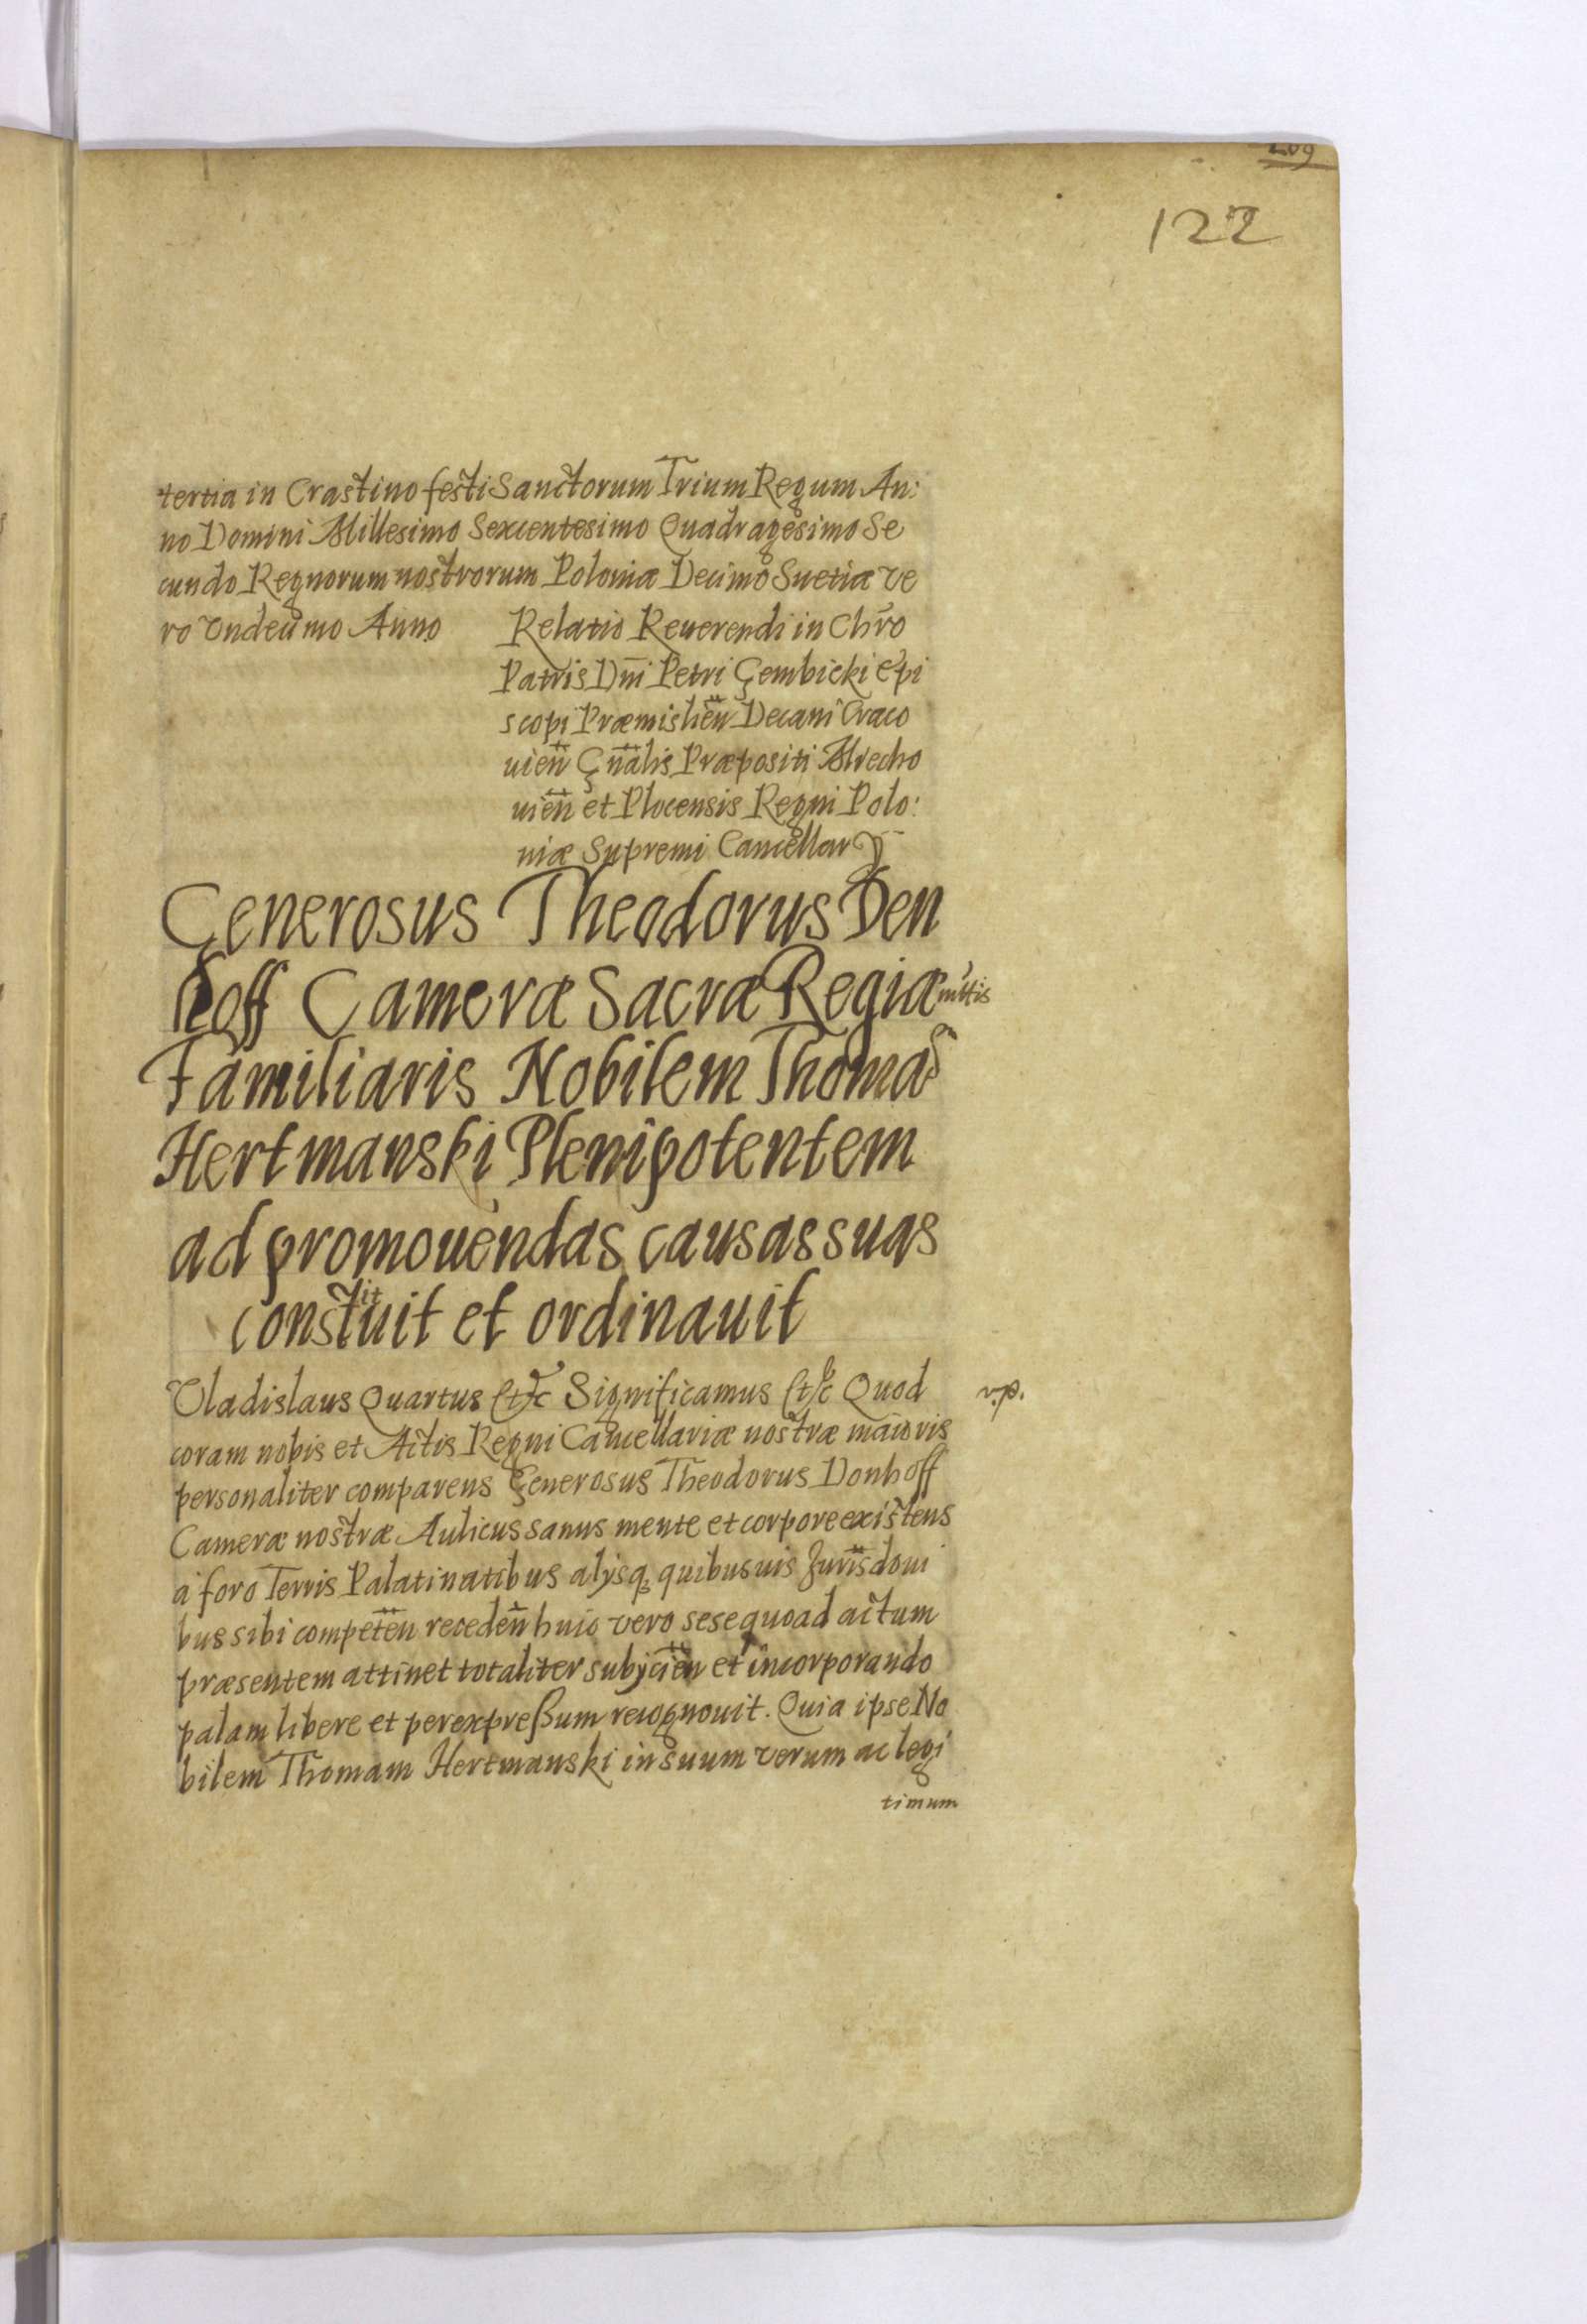 209
122
tertia in Crastino festi Sanctorum Trium Regum An:
no Domini Millesimo Sexcentesimo Quadragesimo Se
cundo Regnorum nostrorum Poloniæ Decimo Suetiæ ve
ro Vndecimo Anno Relatio Reuerendi in Chr̃o
Patris Dn̄i Petri Gembicki Epi
scopi Præmislien̄ Decani Craco
uien̄ Gn̄alis Præpositi Miecho
uien̄ et Plocensis Regni Polo:
niæ Supremi Cancellarÿ
Generosus Theodorus Den
hoff Cameræ Sacræ Regiæ mttis
Familiaris Nobilem Thomã
Hertmanski Plenipotentem
ad promouendas causas suas
constituit et ordinauit
Vladislaus Quartus Etc Significamus Etc Quod v.p.
coram nobis et Actis Regni Cancellariæ nostræ maioris
personaliter comparens Generosus Theodorus Donhoff
Cameræ nostræ Aulicus sanus mente et corpore existens
a foro Terris Palatinatibus alÿsq; quibusuis Juris̄doni
bus sibi competen̄ receden̄ huic vero sese quoad actum
præsentem attinet totaliter subÿcien̄ et incorporando
palam libere et per expreßum recognouit. Quia ipse No
bilem Thomam Hertmanski in suum verum ac legi
timum